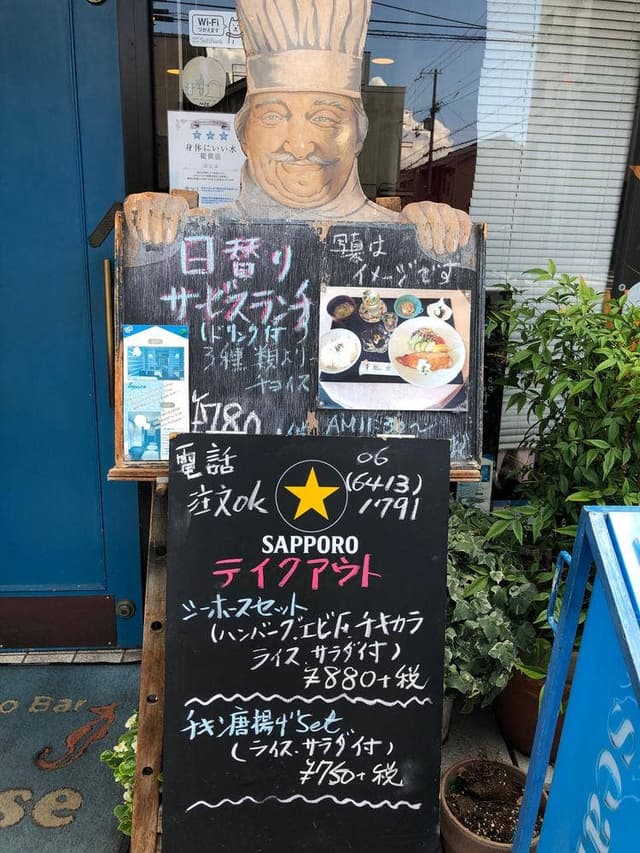 Wi-Fi
つかえます
SoftBank
身体にいい水
提供店
日替り
サービスランチ
(ドリンク付
3種類より
チョイス
¥780
写真は
イメージです
AM11:30〜
電話
注文ok
06
(6413)
1791
SAPPORO
テイクアウト
シーホースセット
(ハンバーグ.エビFr チキカラ
ライス.サラダ付)
¥880+税
チキン唐揚げSet
(ライス.サラダ付)
¥750+税
o Bar
se